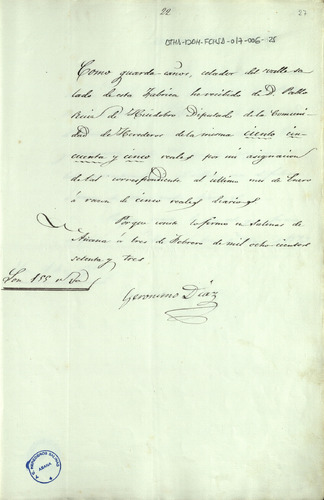 22
27
ATHA-DAH-FCHSA-017-006-25
Como guarda-caños, celador del valle sa
lado de esta fabrica he recibido de D. Pablo
Ruiz de Diputado de la Comuni
dad de Herederos de la misma ciento cin
cuenta y cinco reales por mi asignacion
de tal correspondiente al último mes de Enero
á razon de cinco reales diarios.
Para que conste lo firmo en Salinas de
Añana á tres de Febrero de mil ochocientos
setenta y tres
Son 155 r.s
Geronimo Díaz
AÑANA